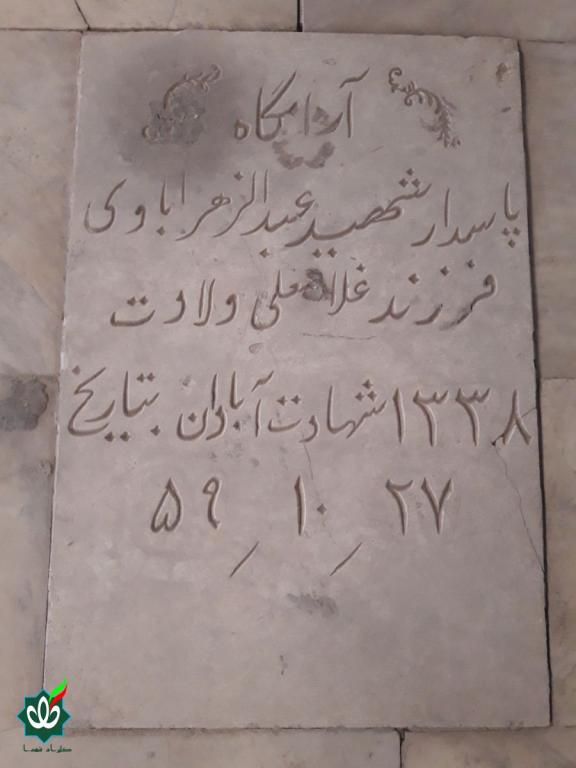 آرامگاه
پاسدار شهید عبدالزهرا باوی
فرزند غلامعلی ولادت
۱۳۳۸ شهادت آبادان بتاریخ
۲۷ / ۱۰ / ۵۹